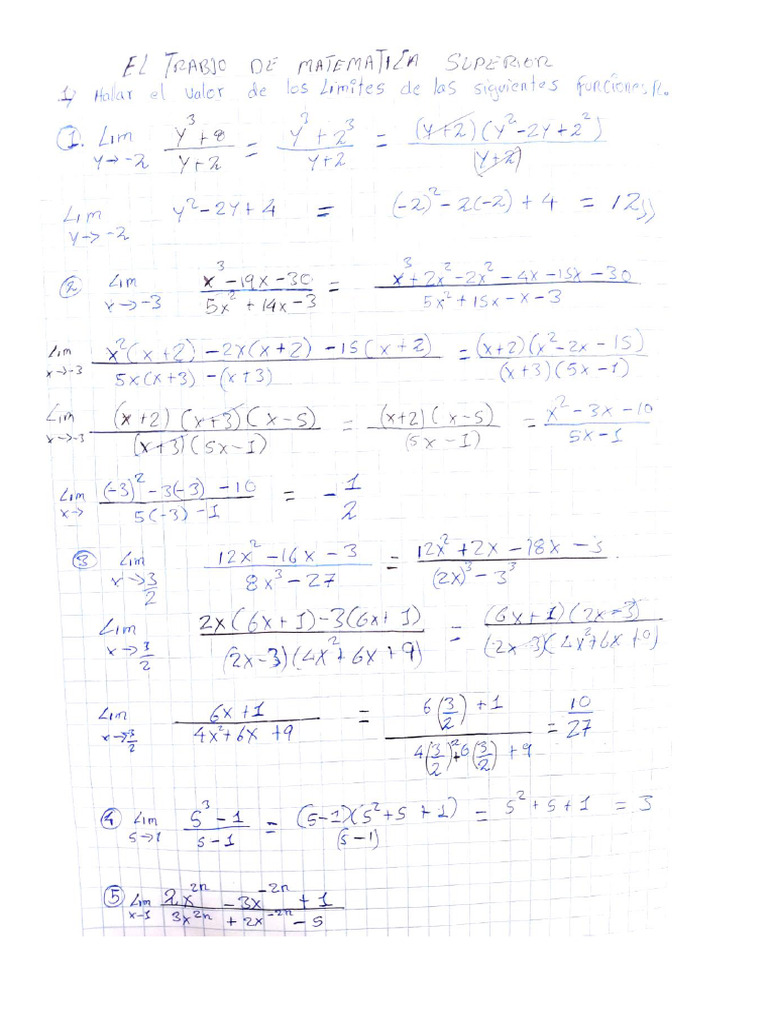 EL TRABJO DE MATEMATICA SUPERIOR
1) Halar el valor de los Limites de las siguientes funciones.
①. Lim y→-2 (y³+8)/(y+2) = (y³+2³)/(y+2) = ((y+2)(y²-2y+2²))/(y+2)
Lim y→-2 y²-2y+4 = (-2)²-2(-2)+4 = 12
② Lim x→-3 (x³-19x-30)/(5x²+14x-3) = (x³+2x²-2x²-4x-15x-30)/(5x²+15x-x-3)
Lim x→-3 (x²(x+2)-2x(x+2)-15(x+2))/(5x(x+3)-(x+3)) = ((x+2)(x²-2x-15))/((x+3)(5x-1))
Lim x→-3 ((x+2)(x+3)(x-5))/((x+3)(5x-1)) = ((x+2)(x-5))/(5x-1) = (x²-3x-10)/(5x-1)
Lim x→ ((-3)²-3(-3)-10)/(5(-3)-1) = -1/2
③ Lim x→3/2 (12x²-16x-3)/(8x³-27) = (12x²+2x-18x-3)/((2x)³-3³)
Lim x→3/2 (2x(6x+1)-3(6x+1))/((2x-3)(4x²+6x+9)) = ((6x+1)(2x-3))/((2x-3)(4x²+6x+9))
Lim x→3/2 (6x+1)/(4x²+6x+9) = (6(3/2)+1)/(4(3/2)²+6(3/2)+9) = 10/27
④ Lim s→1 (s³-1)/(s-1) = ((s-1)(s²+s+1))/(s-1) = s²+s+1 = 3
⑤ Lim x-1 (2x²ⁿ-3x⁻²ⁿ+1)/(3x²ⁿ+2x⁻²ⁿ-5)